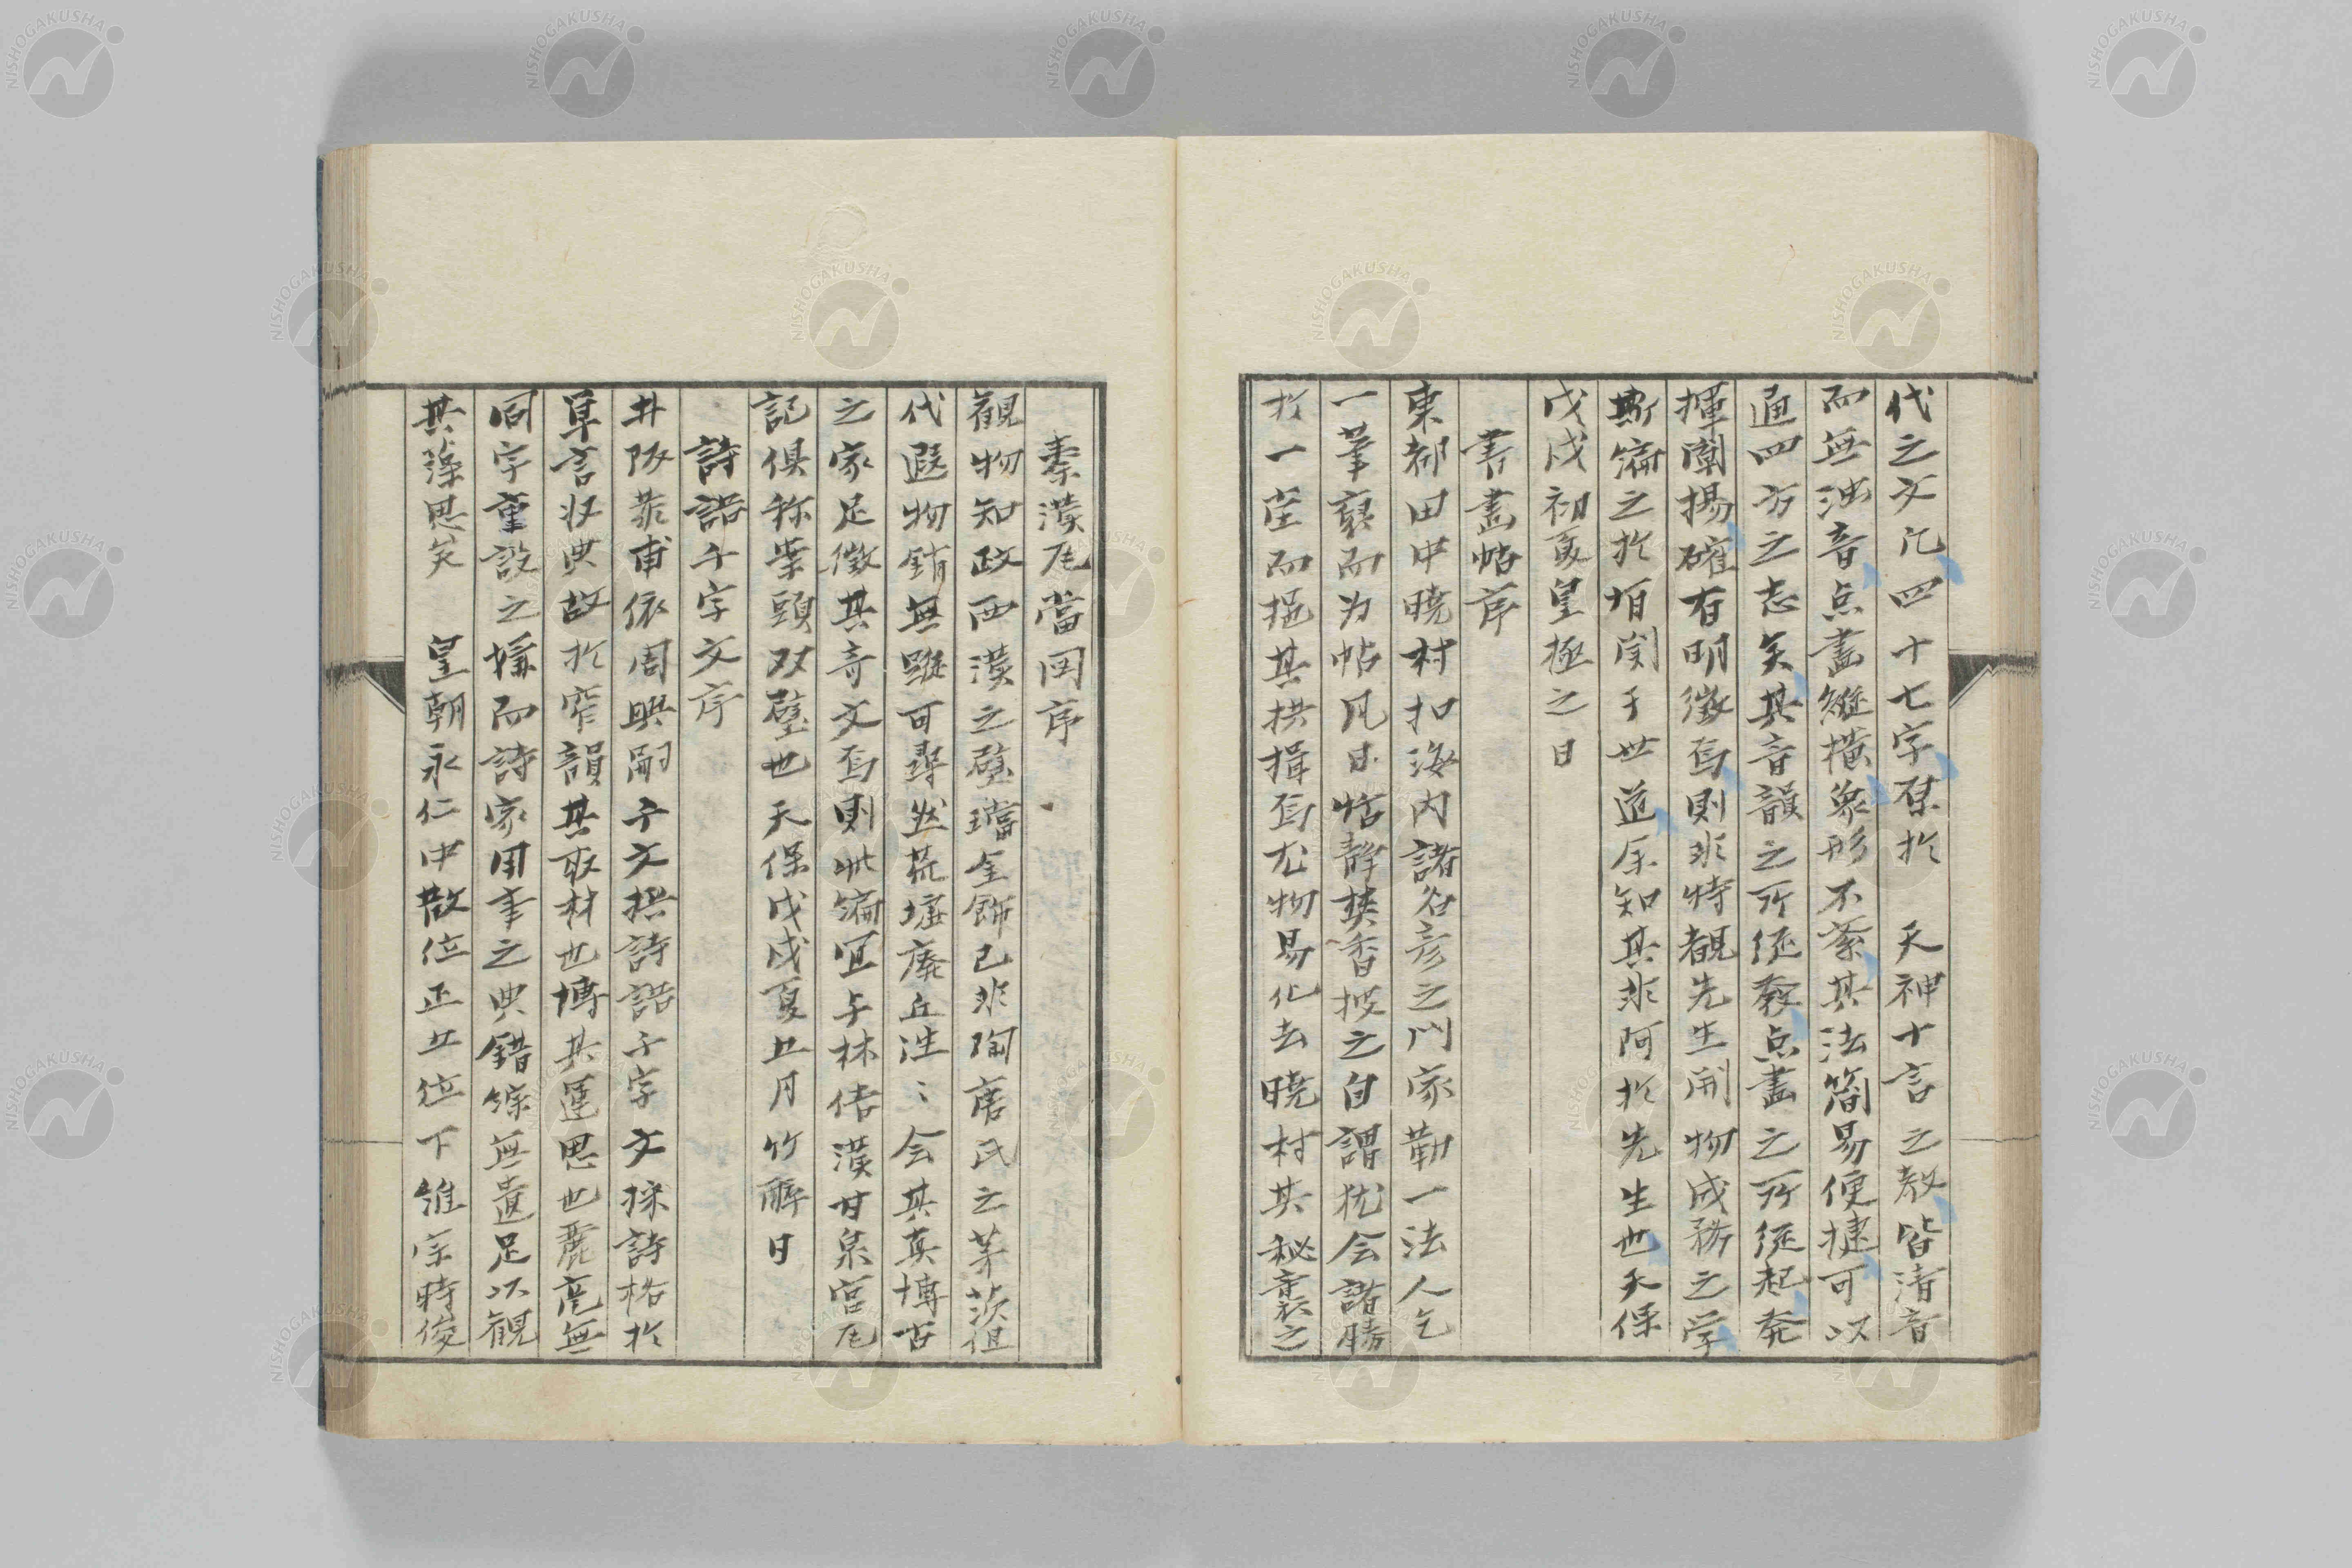 代之文凡四十七字探於　天神十言之教皆清音
而無濁音点畫縱橫象形不紊其法簡易便捷可以
通四方之志矣其音韻之所從教点畫之所從起発
揮闡揚確有明徴焉則非特覩先生開物成務之学
斯編之於有関于世道余知其非阿於先生也天保
戊戌初夏皇極之日
書畫帖序
東都田中暁村扣海内諸名彦之門家勒一法人乞
一筆裒而为帖凡日恬静焚香披之自謂犹会諸勝
於一莚而挹其拱揖焉尤物易化去暁村其秘襲之
秦漢瓦當図序
観物知政西漢之璧璫金飾已非陶唐氏之茅茨但
代遐物銷無蹤可尋然荒墟廃丘泩〻会其真博古
之家足徴其奇文焉則此編宜与林佶漢甘泉宮瓦
記倶称案頭双璧也天保戊戌夏五月竹酔日
詩語千字文序
井阪恭甫依周興嗣千文撰詩語千字文採詩格於
単言収典故於窄韻其取材也博其運思也麗亮無
同字重設之嫌而詩家用事之典錯綜無遺足以観
其藻思矣　皇朝永仁中散位正五位下惟宗時俊
NISHOGAKUSHA